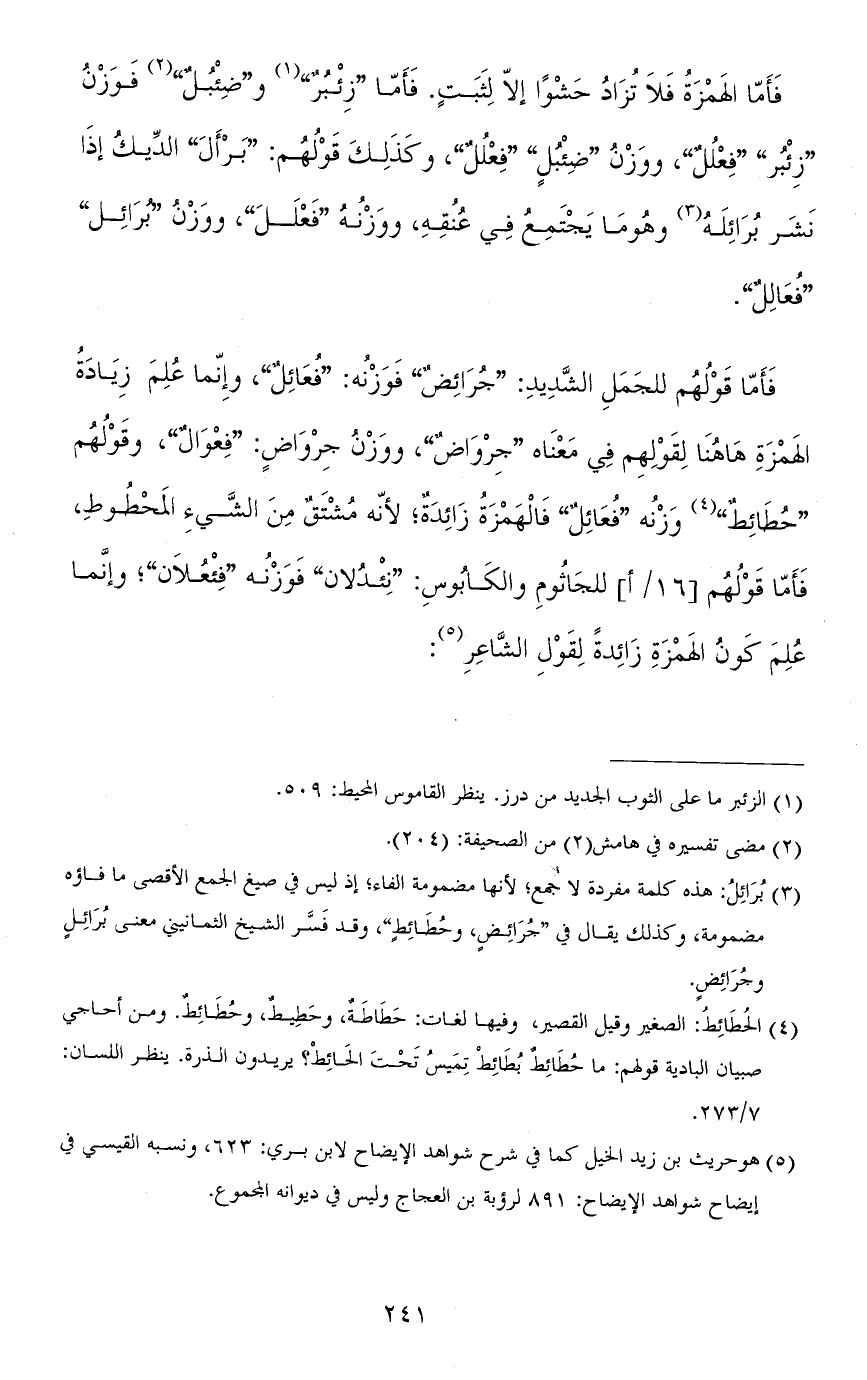 فَأَمّا الهَمْزَةُ فَلاَ تُزَادُ حَشْوًا إلاّ لِثَبَتٍ. فَأَمّا ”زِئْبُرٌ“(١) و”ضِئْبُلٌ“(٢) فَوَزْنُ
”زِئْبُر“ ”فِعْلُلٌ“، ووَزْنُ ”ضِئْبُلٍ“ ”فِعْلُلٌ“، وكَذَلِكَ قَوْلُهُم: ”بَرْأَلَ“ الدِّيكُ إذَا
نَشَر بُرَائِلَهُ(٣) وهُومَا يَجْتَمِعُ فِي عُنُقِهِ، ووَزْنُهُ ”فَعْلَلَ“، ووَزْنُ ”بُرَائِل“
”فُعَالِلٌ“.
فَأَمّا قَوْلُهُم للجَمَلِ الشَّدِيدِ: ”جُرَائِضٌ“ فَوَزْنُه: ”فُعَائِلٌ“، وإنّما عُلِمَ زِيَادَةُ
الهَمْزَةِ هَاهُنَا لِقَوْلِهِم فِي مَعْنَاه ”جِرْوَاضٌ“، ووَزْنُ جِرْوَاضٍ: ”فِعْوَالٌ“، وقَوْلُهُم
”حُطَائِطٌ“(٤) وَزْنُه ”فُعَائِلٌ“ فَالْهَمْزَةُ زَائِدَةٌ؛ لأنّه مُشْتَقٌ مِنَ الشَّيءِ المَحْطُوطِ،
فَأَمّا قَوْلُهُم [١٦/ أ] للجَاثُومِ والكَابُوسِ: ”نِئْدُلان“ فَوَزْنُه ”فِئْعُلاَن“؛ وإنَّما
عُلِمَ كَونُ الهَمْزَةِ زَائِدةً لِقَوْلِ الشَّاعِرِ(٥):
(١) الزئبر ما على الثوب الجديد من درز. ينظر القاموس المحيط: ٥٠٩.
(٢) مضى تفسيره في هامش(٢) من الصحيفة: (٢٠٤).
(٣) بُرَائِلُ: هذه كلمة مفردة لا جمع؛ لأنها مضمومة الفاء؛ إذ ليس في صيغ الجمع الأقصى ما فاؤه
مضمومة، وكذلك يقال في ”جُرَائِضٍ، وحُطَائِطٍ“، وقد فَسَّر الشيخ الثمانيني معنى بُرَائِلٍ
وجُرَائِضٍ.
(٤) الحُطَائِطُ: الصغير وقيل القصير، وفيها لغات: حَطَاطَةٌ، وحَطِيطٌ، وحُطَائِطٌ. ومن أحاجي
صبيان البادية قولهم: ما حُطَائِطٌ بُطَائِطْ تِمَيسُ تَحْتَ الحَائِطْ؟ يريدون الذرة. ينظر اللسان:
٢٧٣/٧.
(٥) هوحريث بن زيد الخيل كما في شرح شواهد الإيضاح لابن بري: ٦٢٣، ونسبه القيسي في
إيضاح شواهد الإيضاح: ٨٩١ لرؤبة بن العجاج وليس في ديوانه المجموع.
٢٤١